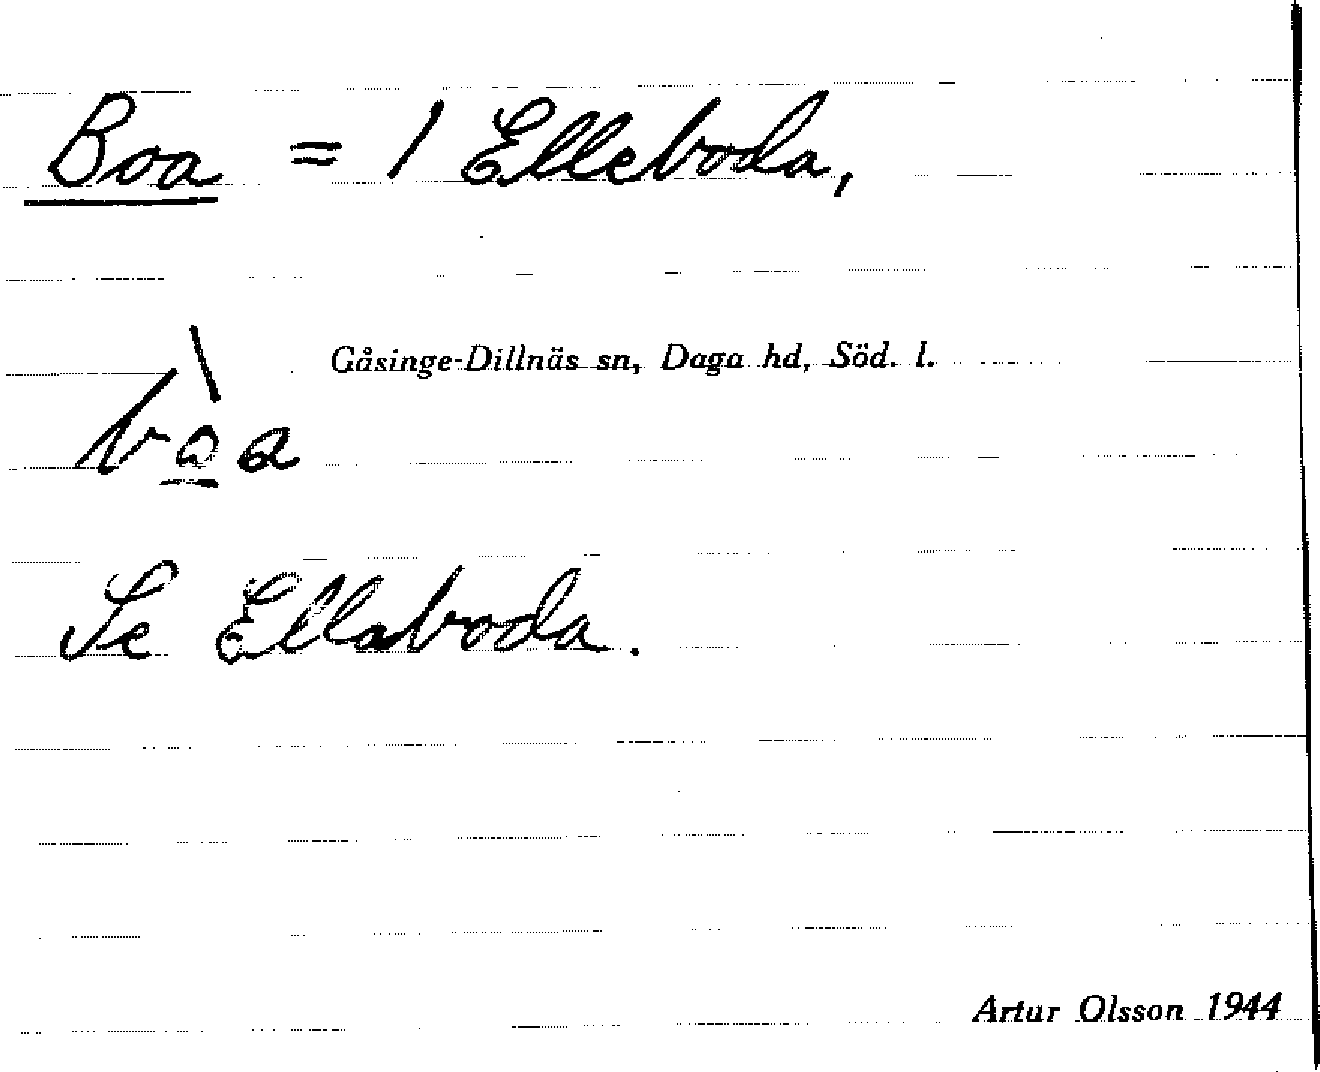 Boa = 1 Elleboda,
Gåsinge-Dillnäs sn, Daga hd, Söd. l.
bò̱a
Se Ellaboda.
Artur Olsson 1944